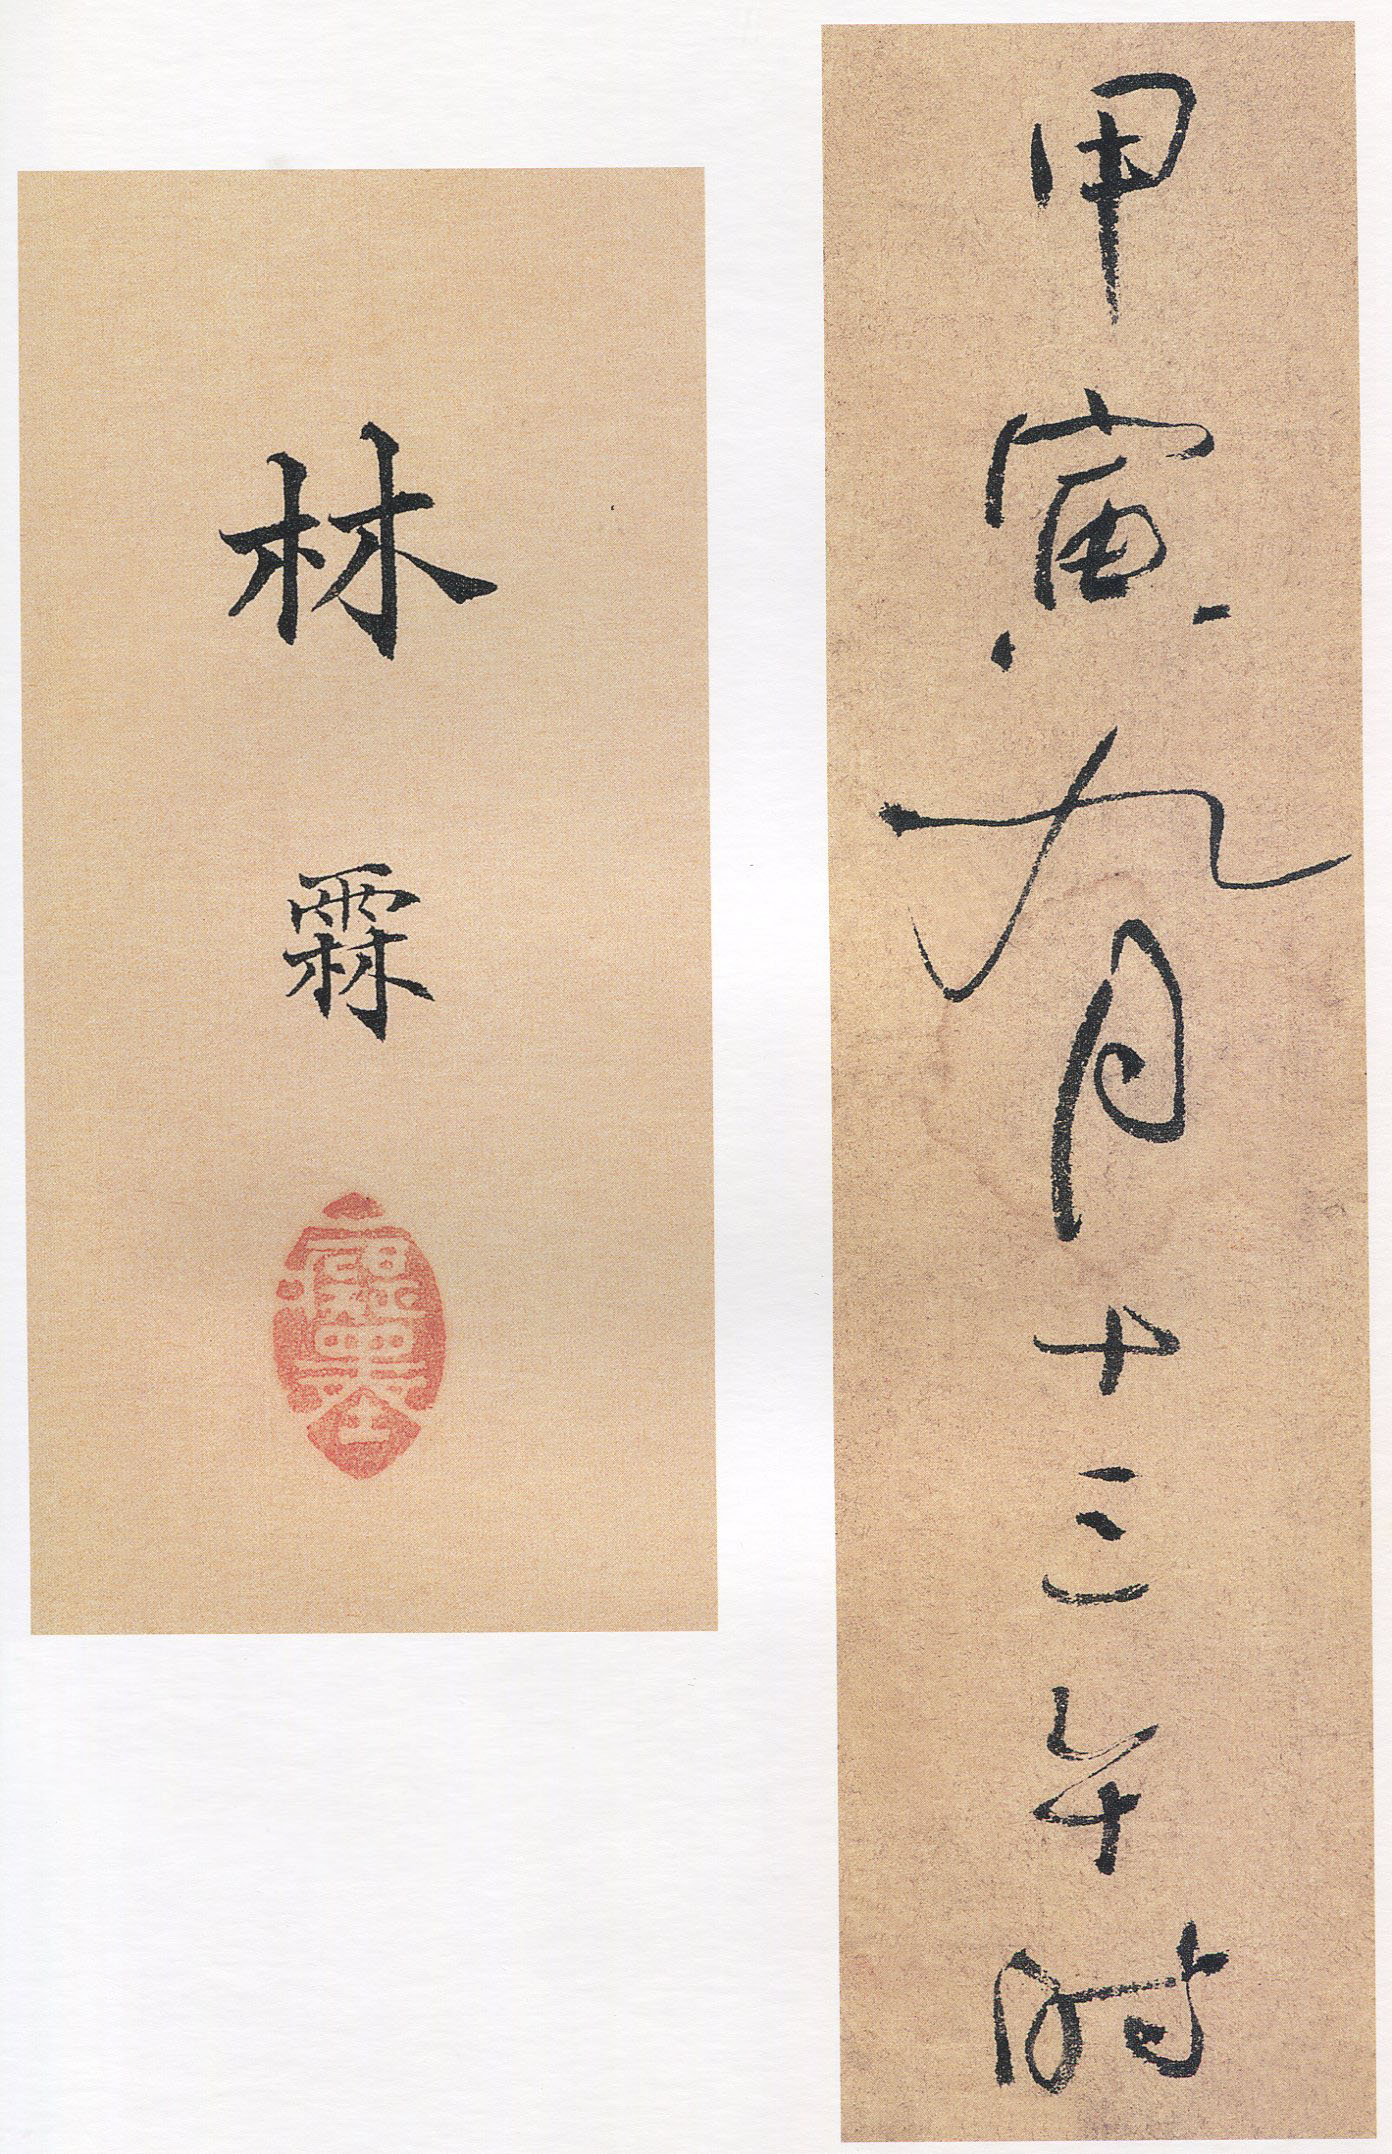 甲寅九月十三午时
林霖